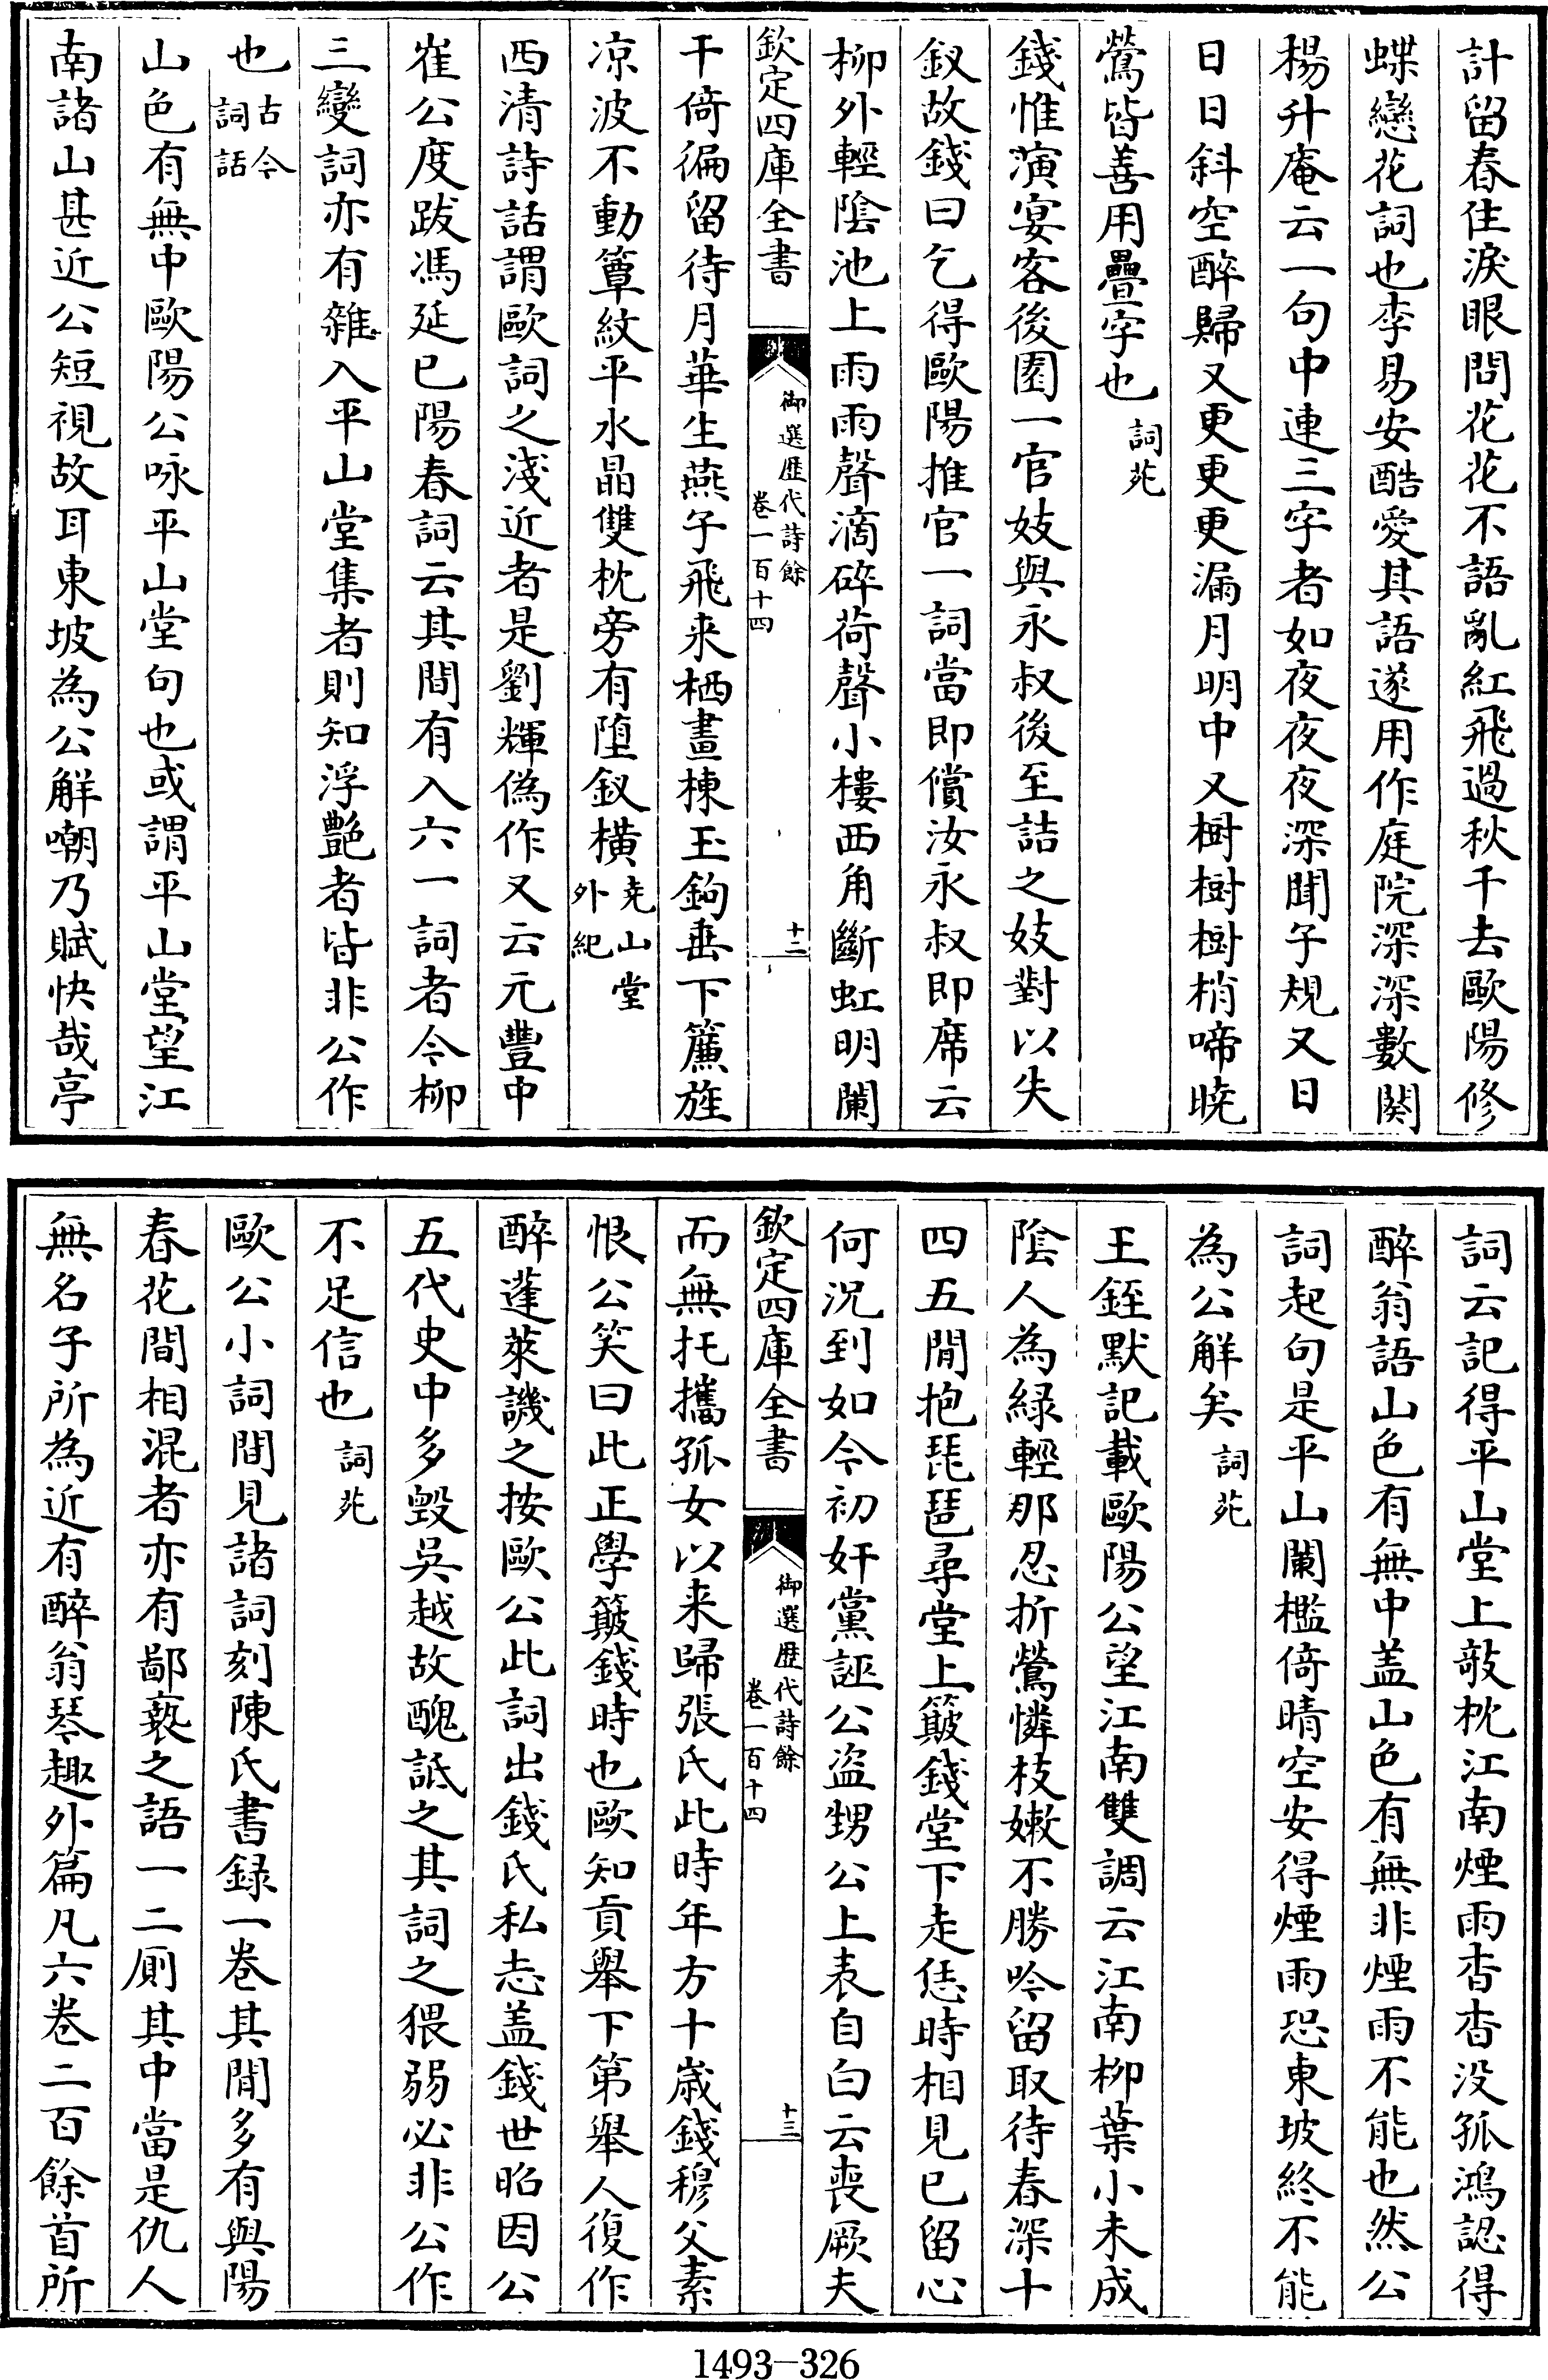 計留春住淚眼問花花不語亂紅飛過秋千去歐陽修
蝶戀花詞也李易安酷愛其語遂用作庭院深深數闋
楊升庵云一句中連三字者如夜夜夜深聞子規又日
日日斜空醉歸又更更更漏月明中又樹樹樹梢啼曉
鶯皆善用疊字也詞苑
錢惟演宴客後園一官妓與永叔後至詰之妓對以失
釵故錢曰乞得歐陽推官一詞當即償汝永叔即席云
柳外輕陰池上雨雨聲滴碎荷聲小樓西角斷虹明闌
欽定四庫全書
御選歷代詩餘
卷一百十四
十二
干倚徧留待月華生燕子飛來栖畫棟玉鉤垂下簾旌
凉波不動簟紋平水晶雙枕旁有墮釵橫堯山堂
外紀
西清詩話謂歐詞之淺近者是劉輝偽作又云元豐中
崔公度跋馮延巳陽春詞云其間有入六一詞者今柳
三變詞亦有雜入平山堂集者則知浮艷者皆非公作
也古今
詞話
山色有無中歐陽公咏平山堂句也或謂平山堂望江
南諸山甚近公短視故耳東坡為公解嘲乃賦快哉亭
詞云記得平山堂上敧枕江南煙雨杳杳没孤鴻認得
醉翁語山色有無中盖山色有無非煙雨不能也然公
詞起句是平山闌檻倚晴空安得煙雨恐東坡終不能
為公解矣詞苑
王銍默記載歐陽公望江南雙調云江南柳葉小未成
陰人為綠輕那忍折鶯憐枝嫩不勝吟留取待春深十
四五閒抱琵琶尋堂上簸錢堂下走恁時相見已留心
何況到如今初奸黨誣公盜甥公上表自白云喪厥夫
欽定四庫全書
御選歷代詩餘
卷一百十四
十三
而無托攜孤女以来歸張氏此時年方十歲錢穆父素
恨公笑曰此正學簸錢時也歐知貢舉下第舉人復作
醉蓬萊譏之按歐公此詞出錢氏私志盖錢世昭因公
五代史中多毀吳越故醜詆之其詞之猥弱必非公作
不足信也詞苑
歐公小詞間見諸詞刻陳氏書録一卷其間多有與陽
春花間相混者亦有鄙褻之語一二厠其中當是仇人
無名子所為近有醉翁琴趣外篇凡六卷二百餘首所
1493-326